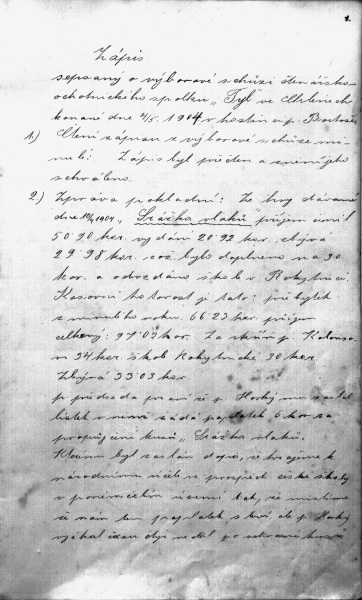 1.
Zápis
sepsaný o výborové schůzi čtenářsko-
ochotnického spolku „Tyl“ ve
konané dne 1/5 1904 v hostin. u p.
1.) Čtení zápisu z výborové schůze mi-
nulé: Zápis byl přečten a
schváleno.
2.) Zpráva pokladní: Ze hry dávané
dne 1904 „Srážka vlaků“ příjem činil
50·90 kor. vydání 20·92 kor. zbývá
29·98 kor. což bylo doplněno na 30
kor. a odevzdáno škole v Rokytnici.
Kasovní hotovost je tato: přebytek
z minulého roku 66·23 kor. příjem
celkový: 97·03 kor. Za p.
34 kor. škole Rokytnické 30 kor.
Zbývá 33·03 kor.
p. předseda praví že p. Horký mu zaslal
lístek v němž žádá poplatek 6 kor. za
propůjčení kusu „Srážka vlaků“.
byl zaslán dopis, že hrajeme k
národnímu účeli ve prospěch české školy
v poněmčilém území tak, že myslíme
že nám ten poplatek sleví, ale p. Horký